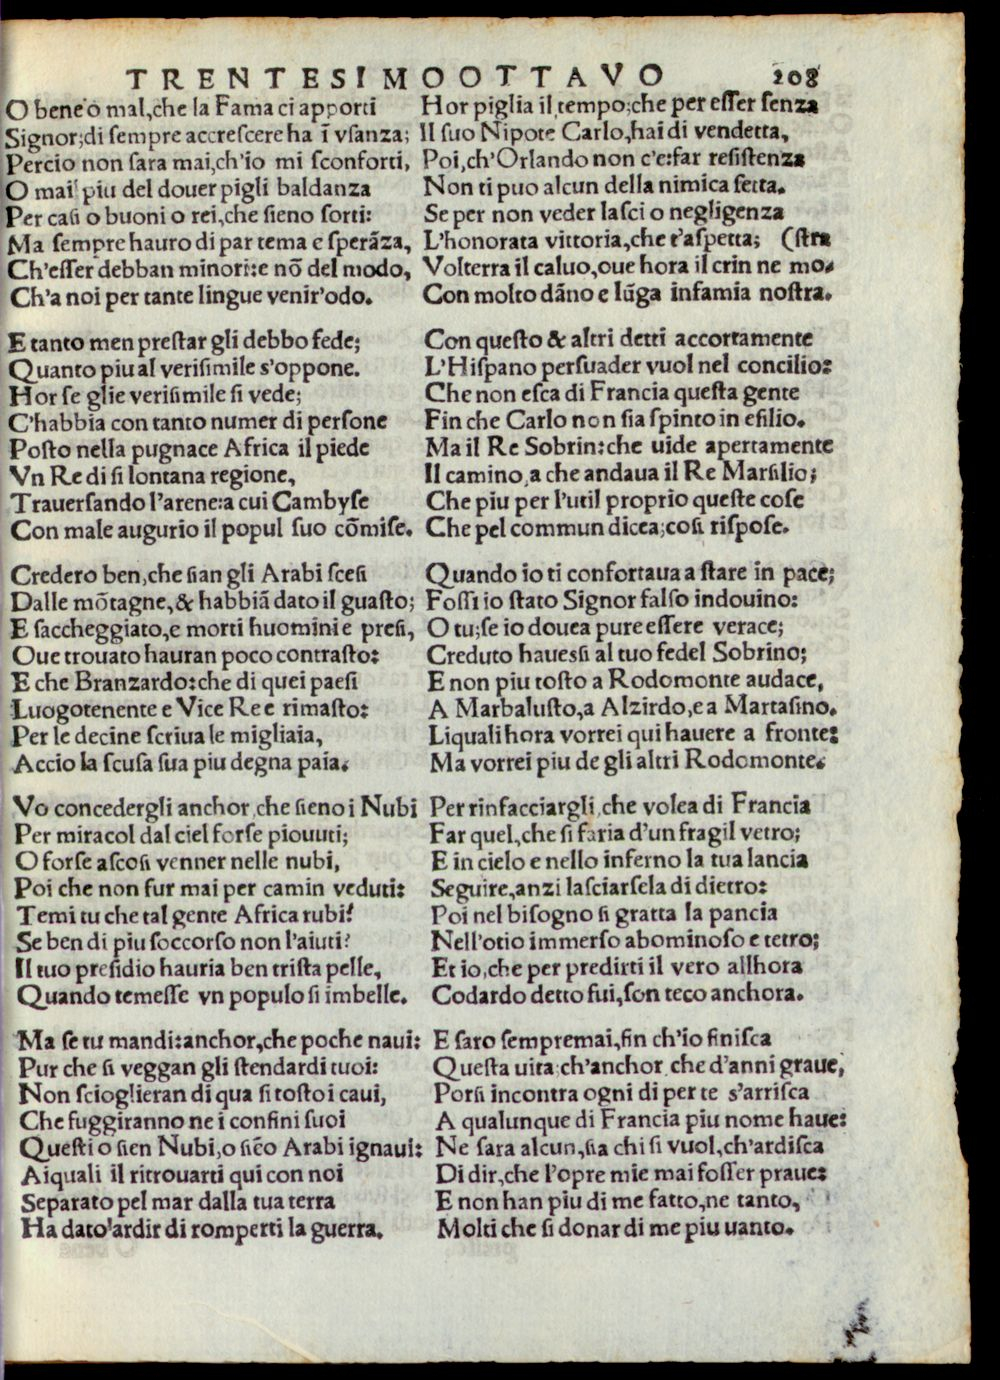 TRENTESIMOOTTAVO 208
O bene o mal, che la Fama ci apporti
Signor; di sempre accrescere ha ĩ vsanza;
Percio non sara mai, ch'io mi sconforti,
O mai piu del douer pigli baldanza
Per casi o buoni o rei, che sieno sorti:
Ma sempre hauro di par tema e sperãza,
Ch'esser debban minori: e nõ del modo,
Ch'a noi per tante lingue venir'odo.
E tanto men prestar gli debbo fede;
Quanto piu al verisimile s'oppone.
Hor se glie verisimile si vede;
C'habbia con tanto numer di persone
Posto nella pugnace Africa il piede
Vn Re di si lontana regione,
Trauersando l'arene: a cui Cambyse
Con male augurio il popul suo cõmise.
Credero ben, che sian gli Arabi scesi
Dalle mõtagne, & habbiã dato il guasto;
E saccheggiato, e morti huomini e presi,
Oue trouato hauran poco contrasto:
E che Branzardo: che di quei paesi
Luogotenente e Vice Re e rimasto:
Per le decine scriua le migliaia,
Accio la scusa sua piu degna paia.
Vo concedergli anchor, che sieno i Nubi
Per miracol dal ciel forse piouuti;
O forse ascosi venner nelle nubi,
Poi che non fur mai per camin veduti:
Temi tu che tal gente Africa rubi?
Se ben di piu soccorso non l'aiuti?
Il tuo presidio hauria ben trista pelle,
Quando temesse vn populo si imbelle.
Ma se tu mandi: anchor, che poche naui:
Pur che si veggan gli stendardi tuoi:
Non scioglieran di qua si tosto i caui,
Che fuggiranno ne i confini suoi
Questi o sien Nubi, o siẽo Arabi ignaui:
Aiquali il ritrouarti qui con noi
Separato pel mar dalla tua terra
Ha dato'ardir di romperti la guerra.
Hor piglia il tempo; che per esser senza
Il suo Nipote Carlo, hai di vendetta,
Poi, ch'Orlando non c'e: far resistenza
Non ti puo alcun della nimica setta.
Se per non veder lasci o negligenza
L'honorata vittoria, che t'aspetta; (stra
Volterra il caluo, oue hora il crin ne mo-
Con molto dãno e lũga infamia nostra.
Con questo & altri detti accortamente
L'Hispano persuader vuol nel concilio:
Che non esca di Francia questa gente
Fin che Carlo non sia spinto in esilio.
Ma il Re Sobrin: che uide apertamente
Il camino, a che andaua il Re Marsilio;
Che piu per l'util proprio queste cose
Che pel commun dicea; cosi rispose.
Quando io ti confortaua a stare in pace;
Fossi io stato Signor falso indouino:
O tu; se io douea pure essere verace;
Creduto hauessi al tuo fedel Sobrino;
E non piu tosto a Rodomonte audace,
A Marbalusto, a Alzirdo, e a Martasino.
Liquali hora vorrei qui hauere a fronte:
Ma vorrei piu de gli altri Rodomonte.
Per rinfacciargli, che volea di Francia
Far quel, che si faria d'un fragil vetro;
E in cielo e nello inferno la tua lancia
Seguire, anzi lasciarsela di dietro:
Poi nel bisogno si gratta la pancia
Nell'otio immerso abominoso e tetro;
Et io, che per predirti il vero allhora
Codardo detto fui, son teco anchora.
E saro sempremai, fin ch'io finisca
Questa uita; ch'anchor che d'anni graue,
Porsi incontra ogni di per te s'arrisca
A qualunque di Francia piu nome haue:
Ne sara alcun, sia chi si vuol, ch'ardisca
Di dir, che l'opre mie mai fosser praue:
E non han piu di me fatto, ne tanto,
Molti che si donar di me piu uanto.